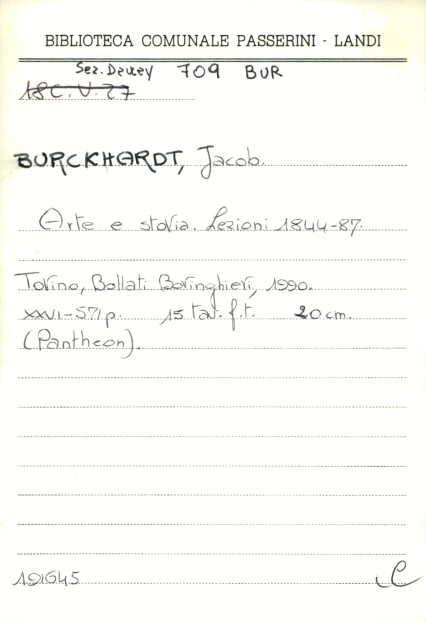 BIBLIOTECA COMUNALE PASSERINI - LANDI
Sez. Dewey 709 BUR
18C.V.27
BURCKHARDT, Jacob.
Arte e storia. Lezioni 1844-87.
Torino, Bollati Boringhieri, 1990.
XXVI-571 p. 15 tav. f.t. 20 cm.
(Pantheon).
191645 C